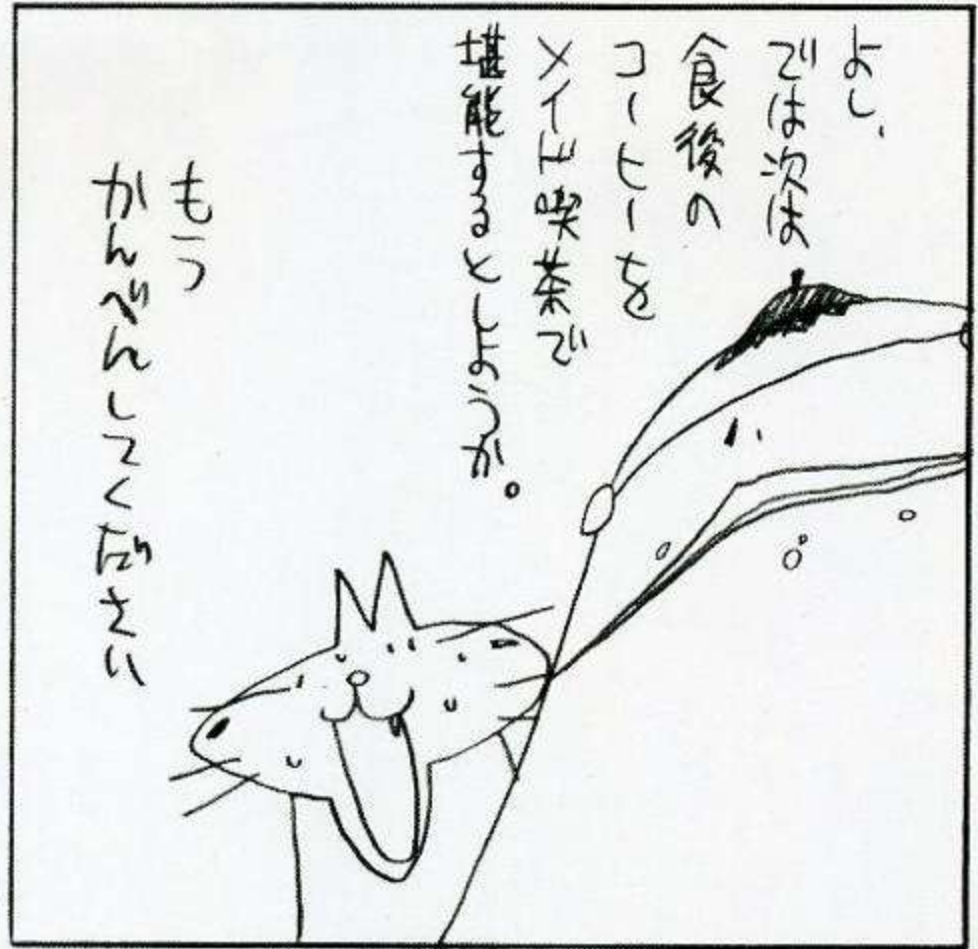 よし、
では次は
食後の
コーヒーを
メイド喫茶で
堪能するとしようか。
もう
かんべんしてください